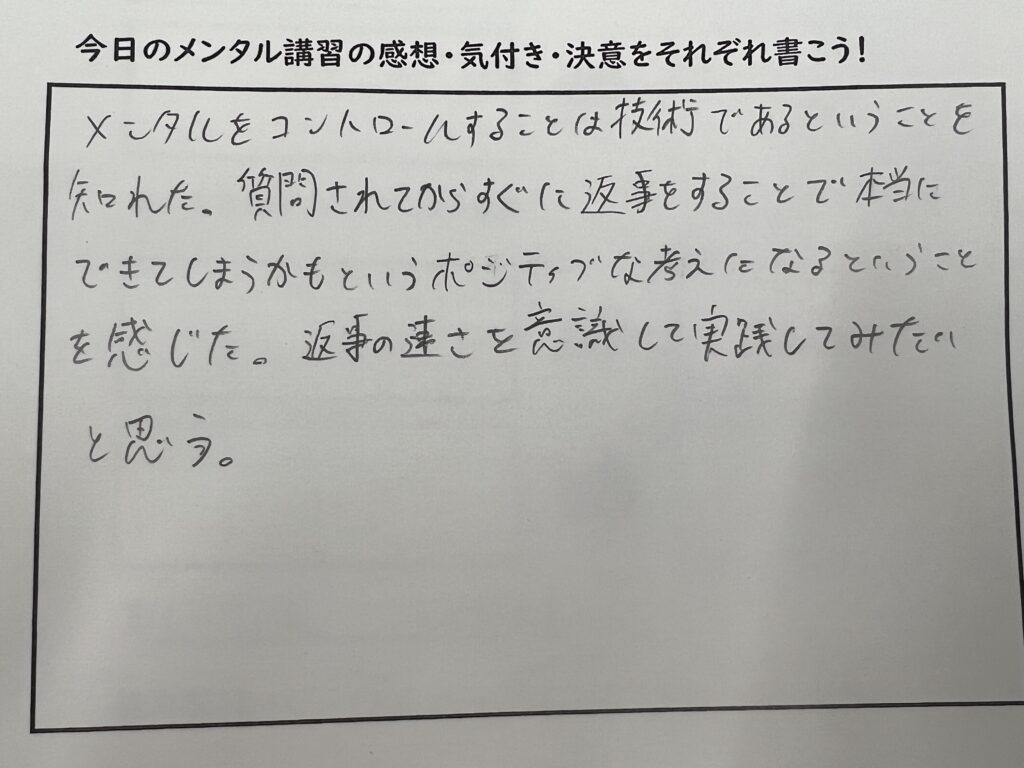 今日のメンタル講習の感想・気付き・決意をそれぞれ書こう!
メンタルをコントロールすることは技術であるということを
知れた。質問されてからすぐに返事をすることで本当に
できてしまうかもというポジティブな考えになるということ
を感じた。返事の速さを意識して実践してみたい
と思う。